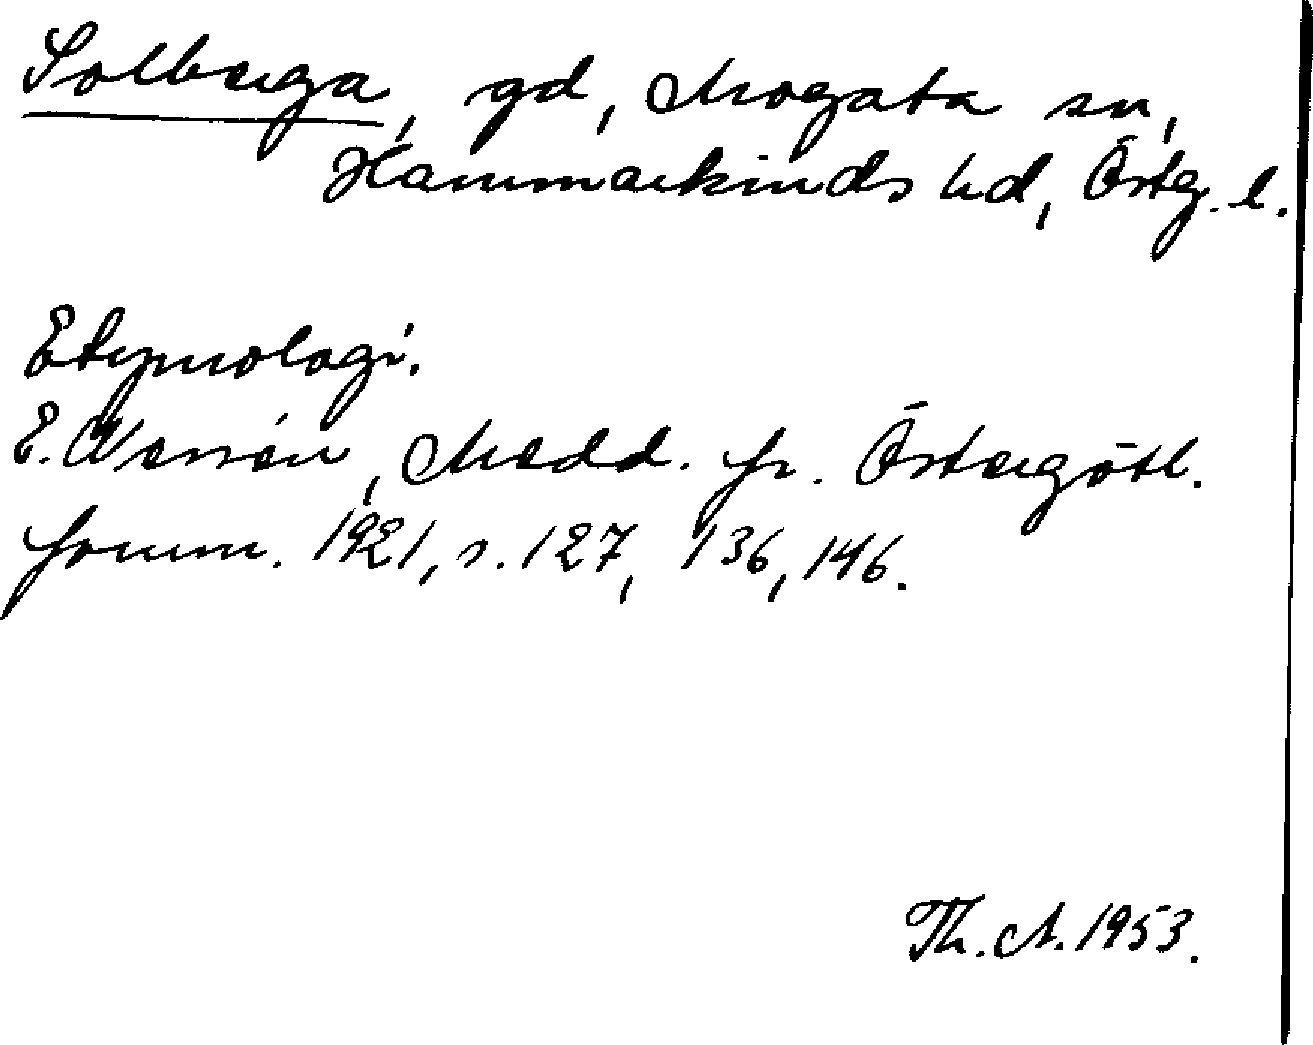 Solberga, gd, Mogata sn,
Hammarkinds hd, Östg. l.
Etymologi.
E. Wessén, Medd. fr. Östergötl.
fornm. 1921, s. 127, 136, 146.
Th. A. 1953.